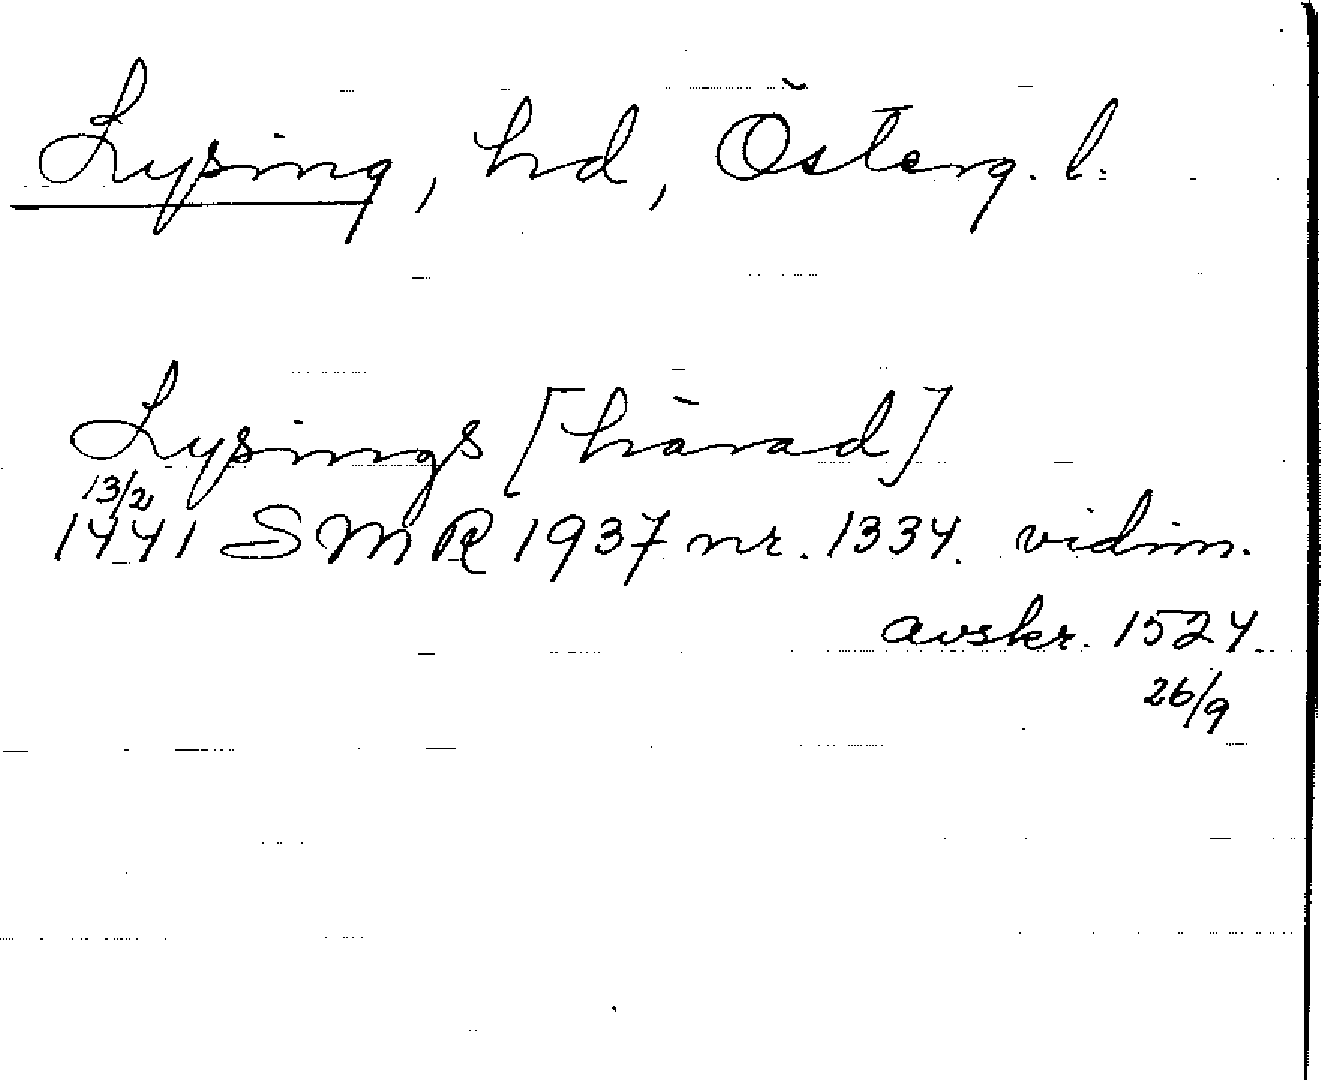 Lysing, hd, Österg. l.
Lysings [härad]
13/2
1441 SMR 1937 nr. 1334. vidim.
avskr. 1524.
26/9